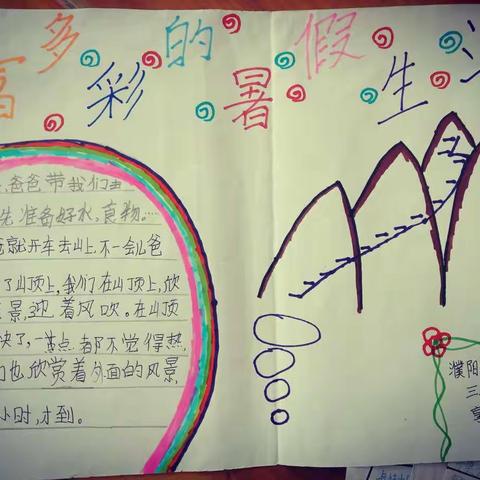 富多彩的暑假生活
爸爸带我们去
先准备好水，食物……
爸就开车去山上.不一会儿爸
了山顶上，我们在山顶上，欣
景，迎着风吹。在山顶
快了，一点都不觉得热，
们也欣赏着外面的风景，
小时，才到。
濮阳
三